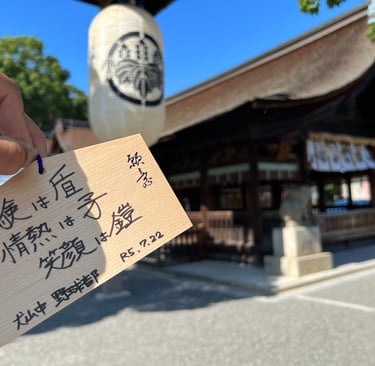 願意
は盾
情熱は矛
笑顔は鎧
R5.7.22
犬山中 野球部